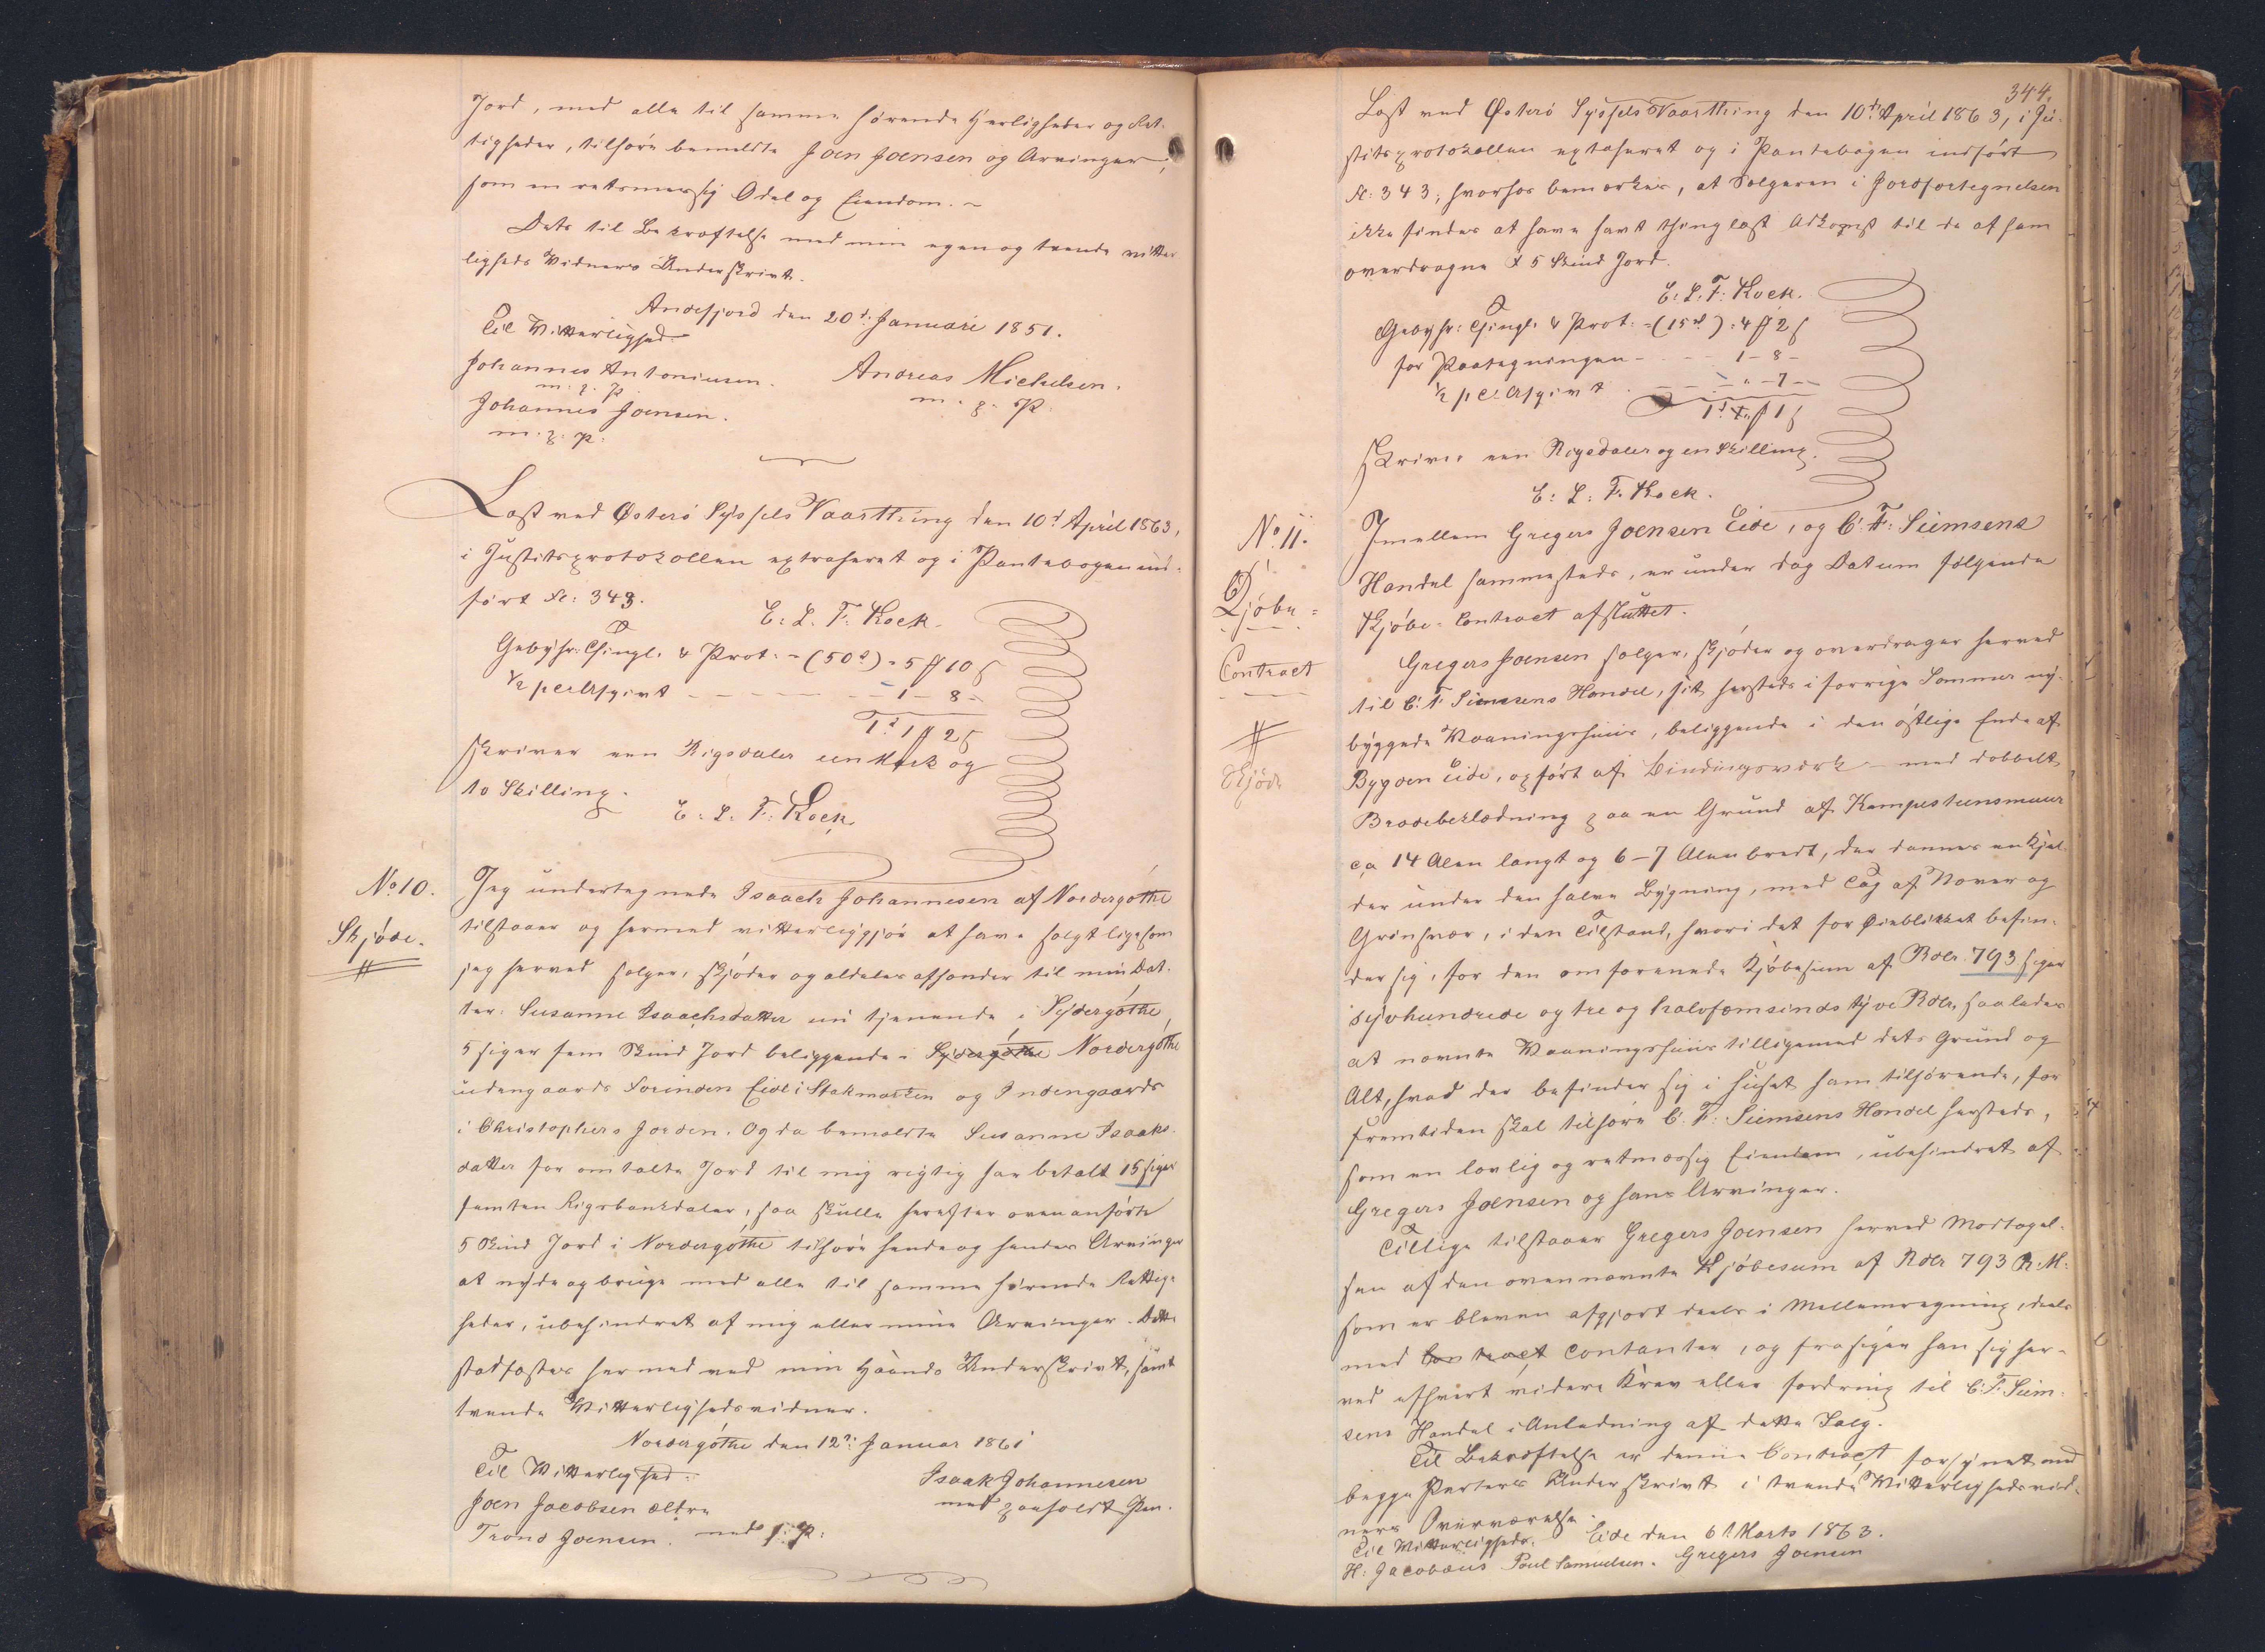 Jord, med alle til samme hörende Herligheder og Ret-
tigheder, tilhöre bemeldte Joen Joensen og Arvinger,
som en retmæssig Odel og Eiendom. ~
Dets til Bekræftelse med min egen og tvende vitter
ligheds Vidners Underskrivt.
Andefjord den 20d. Januari 1851.
Til Vitterlighed
Johannes Antoniusen. Andreas Michelsen.
m. p. p. m. p. P.
Johannes Joensen.
m. p. p.
Læst ved Österö Syssels Vaarthing den 10d April 1863,
i Justitsprotokollen extraheret og i Pantebogen ind-
fört No: 343.
E. L. F. Kock.
Gebyhr: Thingl. & Prot. = (50d) = 5 ꟻ 10 ẞ
½ pct Afgivt - - - - - 1 - 8 -
1d 1 ꟻ 2 ẞ
skriver een Rigsdaler een Mark og
to Skilling.
E. L. F. Kock.
No 10.
Skjöde.
Jeg undertegnede Isaach Johannesen af Nordergöthe
tilstaaer og hermed vitterliggjör at have solgt ligesom
jeg herved sælger, skjöder og aldeles afhænder til min Dat-
ter: Susanne Isaachsdatter nu tjenende i Sydergöthe
5 siger fem Skind Jord beliggende i Sydergöthe Nordergöthe
udengaards Forinden Eide i Stakmarken og Indengaards
i Christophers Jorden. Og da bemeldte Susanne Isaaks-
datter for omtalte Jord til mig rigtig har betalt 15 siger
femten Rigsbankdaler, saa skulle herefter ovenanförte
5 Skind Jord i Nordergöthe tilhöre hende og hendes Arvinger
at nyde og bruge med alle til samme hörende Rettig-
heder, ubehindret af mig eller mine Arvinger. Dette
stadfæstes hermed ved min Haands Underskrivt, samt
tvende Vitterlighedsvidner.
Nordergöthe den 12te Januar 1861
Til Vitterlighed:
Isaak Johannesen
Joen Jacobsen ældre med paaholdt Pen.
Trond Joensen. med p. P.
344.
Læst ved Österö Syssels Vaarthing den 10d April 1863, i Ju-
stitsprotokollen extraheret og i Pantebogen indfört
No: 343; hvorhos bemærkes, at Sælgeren i Jordfortegnelsen
ikke findes at have havt thinglæst Adkomst til de af ham
overdragne 5 Skind Jord.
E. L. F. Kock.
Gebyhr: Thingl. & Prot. = (15d) = 4 ꟻ 2 ẞ
for Paategningen - - - 1 - 8 -
½ pCt Afgivt - - - " - 7 -
1d " ꟻ 1 ẞ
skriver een Rigsdaler og en Skilling.
E. L. F. Kock.
No. 11.
Kjöbe-
Contract
Skjöde
Imellem Gregers Joensen Eide, og C. F. Siemsens
Handel sammesteds, er under dag Datum fölgende
Kjöbe-Contract afsluttet.
Gregers Joensen sælger, skjöder og overdrager herved
til C. F. Siemsens Handel, sit hersteds i forrige Sommer ny-
byggede Vaaningshuus, beliggende i den östlige Ende af
Bygden Eide, opfört af Bindingsværk - med dobbelt
Brædebeklædning paa en Grund af Kampesteensmuur
ca 14 Alen langt og 6-7 Alen bredt, der dannes en Kjel-
der under den halve Bygning, med Tag af Næver og
Grönsvær, i den Tilstand, hvori det for Öieblikket befin-
der sig, for den omforenede Kjöbesum af Rdlr. 793 siger
syvhundrede og tre og halvfemsindstyve Rdlr, saaledes
at nævnte Vaaningshuus tilligemed dets Grund og
Alt, hvad der befinder sig i Huset ham tilhörende, for
Fremtiden skal tilhöre C. F. Siemsens Handel hersteds,
som en lovlig og retmæssig Eiendom, ubehindret af
Gregers Joensen og hans Arvinger.
Tillige tilstaaer Gregers Joensen herved Modtagel-
sen af den ovennævnte Kjöbesum af Rdlr 793 R.M.
som er bleven afgjort deels i Mellemregning, deels
med Contract Contanter, og frasiger han sig her-
ved ethvert videre Krav eller Fordring til C. F. Siem-
sens Handel i Anledning af dette Salg.
Til Bekræftelse er denne Contract forsynet med
begge Parters Underskrivt i tvende Vitterlighedsvid-
ners Overværelse.
Eide den 6t Marts 1863.
Til Vitterligheds.
H. Jacobæus Poul Samuelsen. Gregers Joensen